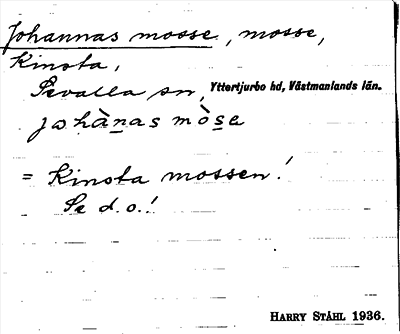 Johannas mosse, mosse,
Kinsta,
Sevalla sn, Yttertjurbo hd, Västmanlands län.
johànas mòse
= Kinsta mossen!
Se d.o.!
HARRY STÅHL 1936.